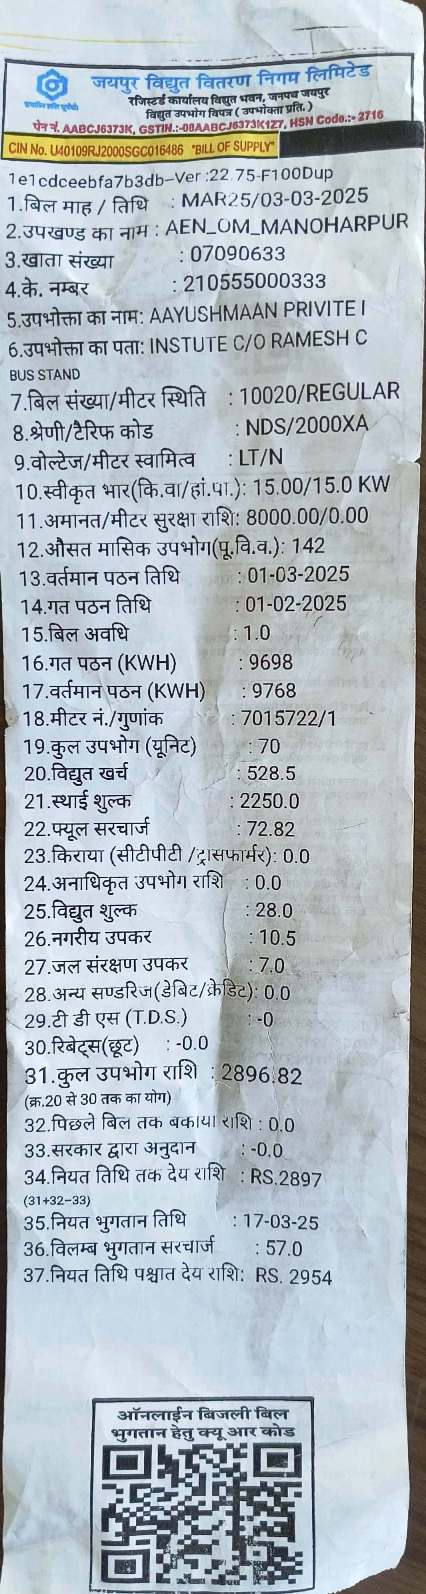 जयपुर विद्युत वितरण निगम लिमिटेड
रजिस्टर्ड कार्यालय विद्युत भवन, जनपथ जयपुर
विद्युत उपभोग विपत्र ( उपभोक्ता प्रति. )
पेन नं. AABCJ6373K, GSTIN.:-08AABCJ6373K1Z7, HSN Code.:- 2716
CIN No. U40109RJ2000SGC016486 "BILL OF SUPPLY"
1e1cdceebfa7b3db-Ver :22.75-F100Dup
1.बिल माह / तिथि : MAR25/03-03-2025
2.उपखण्ड का नाम : AEN_OM_MANOHARPUR
3.खाता संख्या : 07090633
4.के. नम्बर : 210555000333
5.उपभोक्ता का नाम: AAYUSHMAAN PRIVITE I
6.उपभोक्ता का पता: INSTUTE C/O RAMESH C
BUS STAND
7.बिल संख्या/मीटर स्थिति : 10020/REGULAR
8.श्रेणी/टैरिफ कोड : NDS/2000XA
9.वोल्टेज/मीटर स्वामित्व : LT/N
10.स्वीकृत भार(कि.वा/हां.पा.): 15.00/15.0 KW
11.अमानत/मीटर सुरक्षा राशि: 8000.00/0.00
12.औसत मासिक उपभोग(पू.वि.व.): 142
13.वर्तमान पठन तिथि : 01-03-2025
14.गत पठन तिथि : 01-02-2025
15.बिल अवधि : 1.0
16.गत पठन (KWH) : 9698
17.वर्तमान पठन (KWH) : 9768
18.मीटर नं./गुणांक : 7015722/1
19.कुल उपभोग (यूनिट) : 70
20.विद्युत खर्च : 528.5
21.स्थाई शुल्क : 2250.0
22.फ्यूल सरचार्ज : 72.82
23.किराया (सीटीपीटी /ट्रासफार्मर): 0.0
24.अनाधिकृत उपभोग राशि : 0.0
25.विद्युत शुल्क : 28.0
26.नगरीय उपकर : 10.5
27.जल संरक्षण उपकर : 7.0
28.अन्य सण्डरिज(डेबिट/क्रेडिट): 0.0
29.टी डी एस (T.D.S.) : -0
30.रिबेट्स(छूट) : -0.0
31.कुल उपभोग राशि : 2896.82
(क्र.20 से 30 तक का योग)
32.पिछले बिल तक बकाया राशि : 0.0
33.सरकार द्वारा अनुदान : -0.0
34.नियत तिथि तक देय राशि : RS.2897
(31+32-33)
35.नियत भुगतान तिथि : 17-03-25
36.विलम्ब भुगतान सरचार्ज : 57.0
37.नियत तिथि पश्चात देय राशि: RS. 2954
ऑनलाईन बिजली बिल
भुगतान हेतु क्यू आर कोड